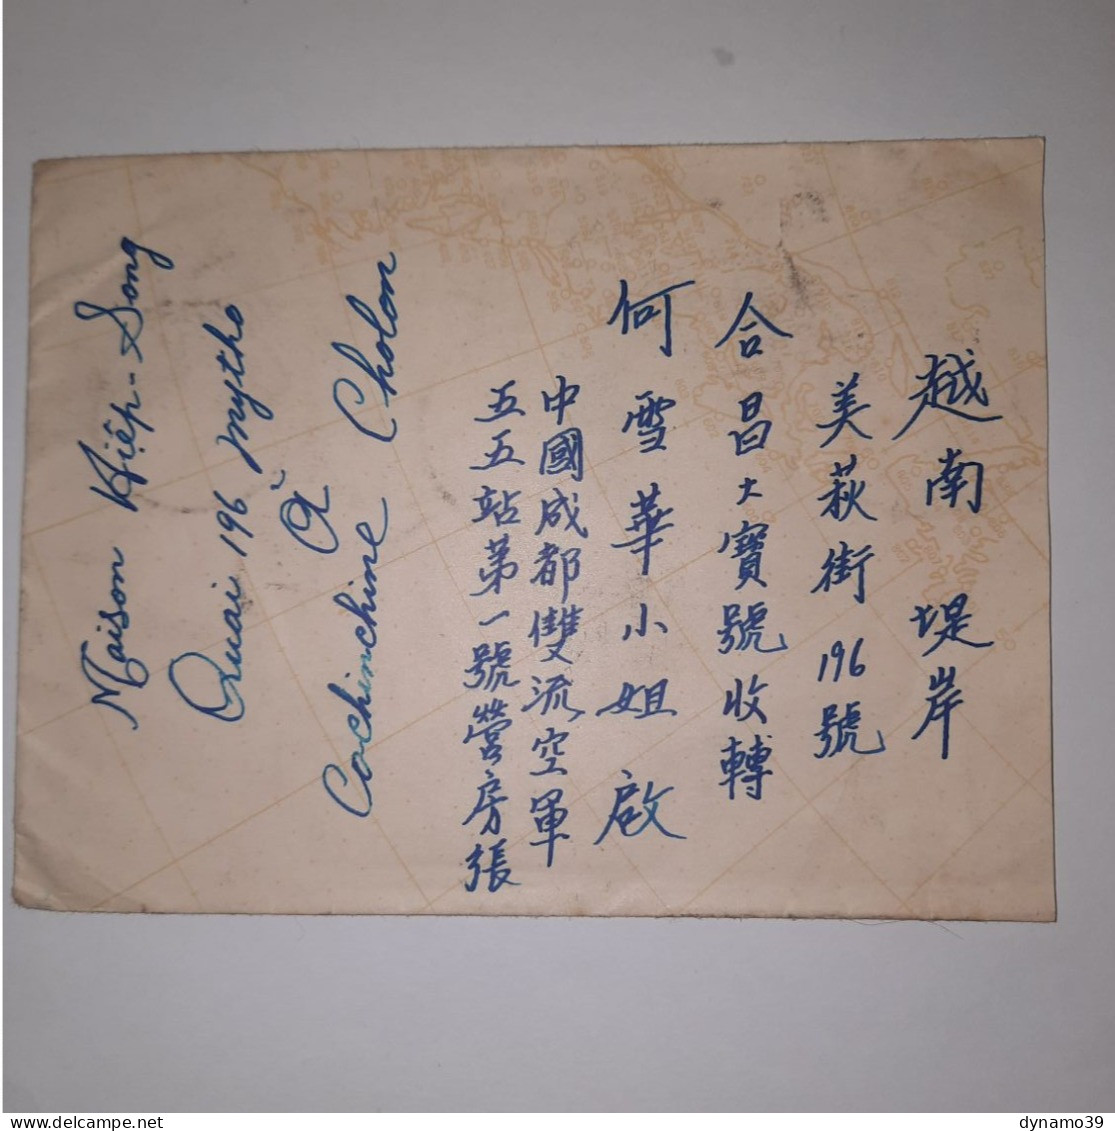 越南堤岸
美萩街196號
合昌大寶號收轉
何雪華小姐啟
中國成都雙流空軍
五五站第一號營房張
Maison Hiệp-Song
Quai 196 Mytho
à
Cochinchine Cholon
dynamo39